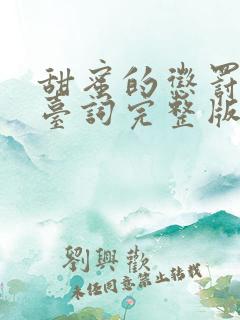 甜蜜的懲罰
臺詞完整版
劉興歡
未經同意禁止轉載